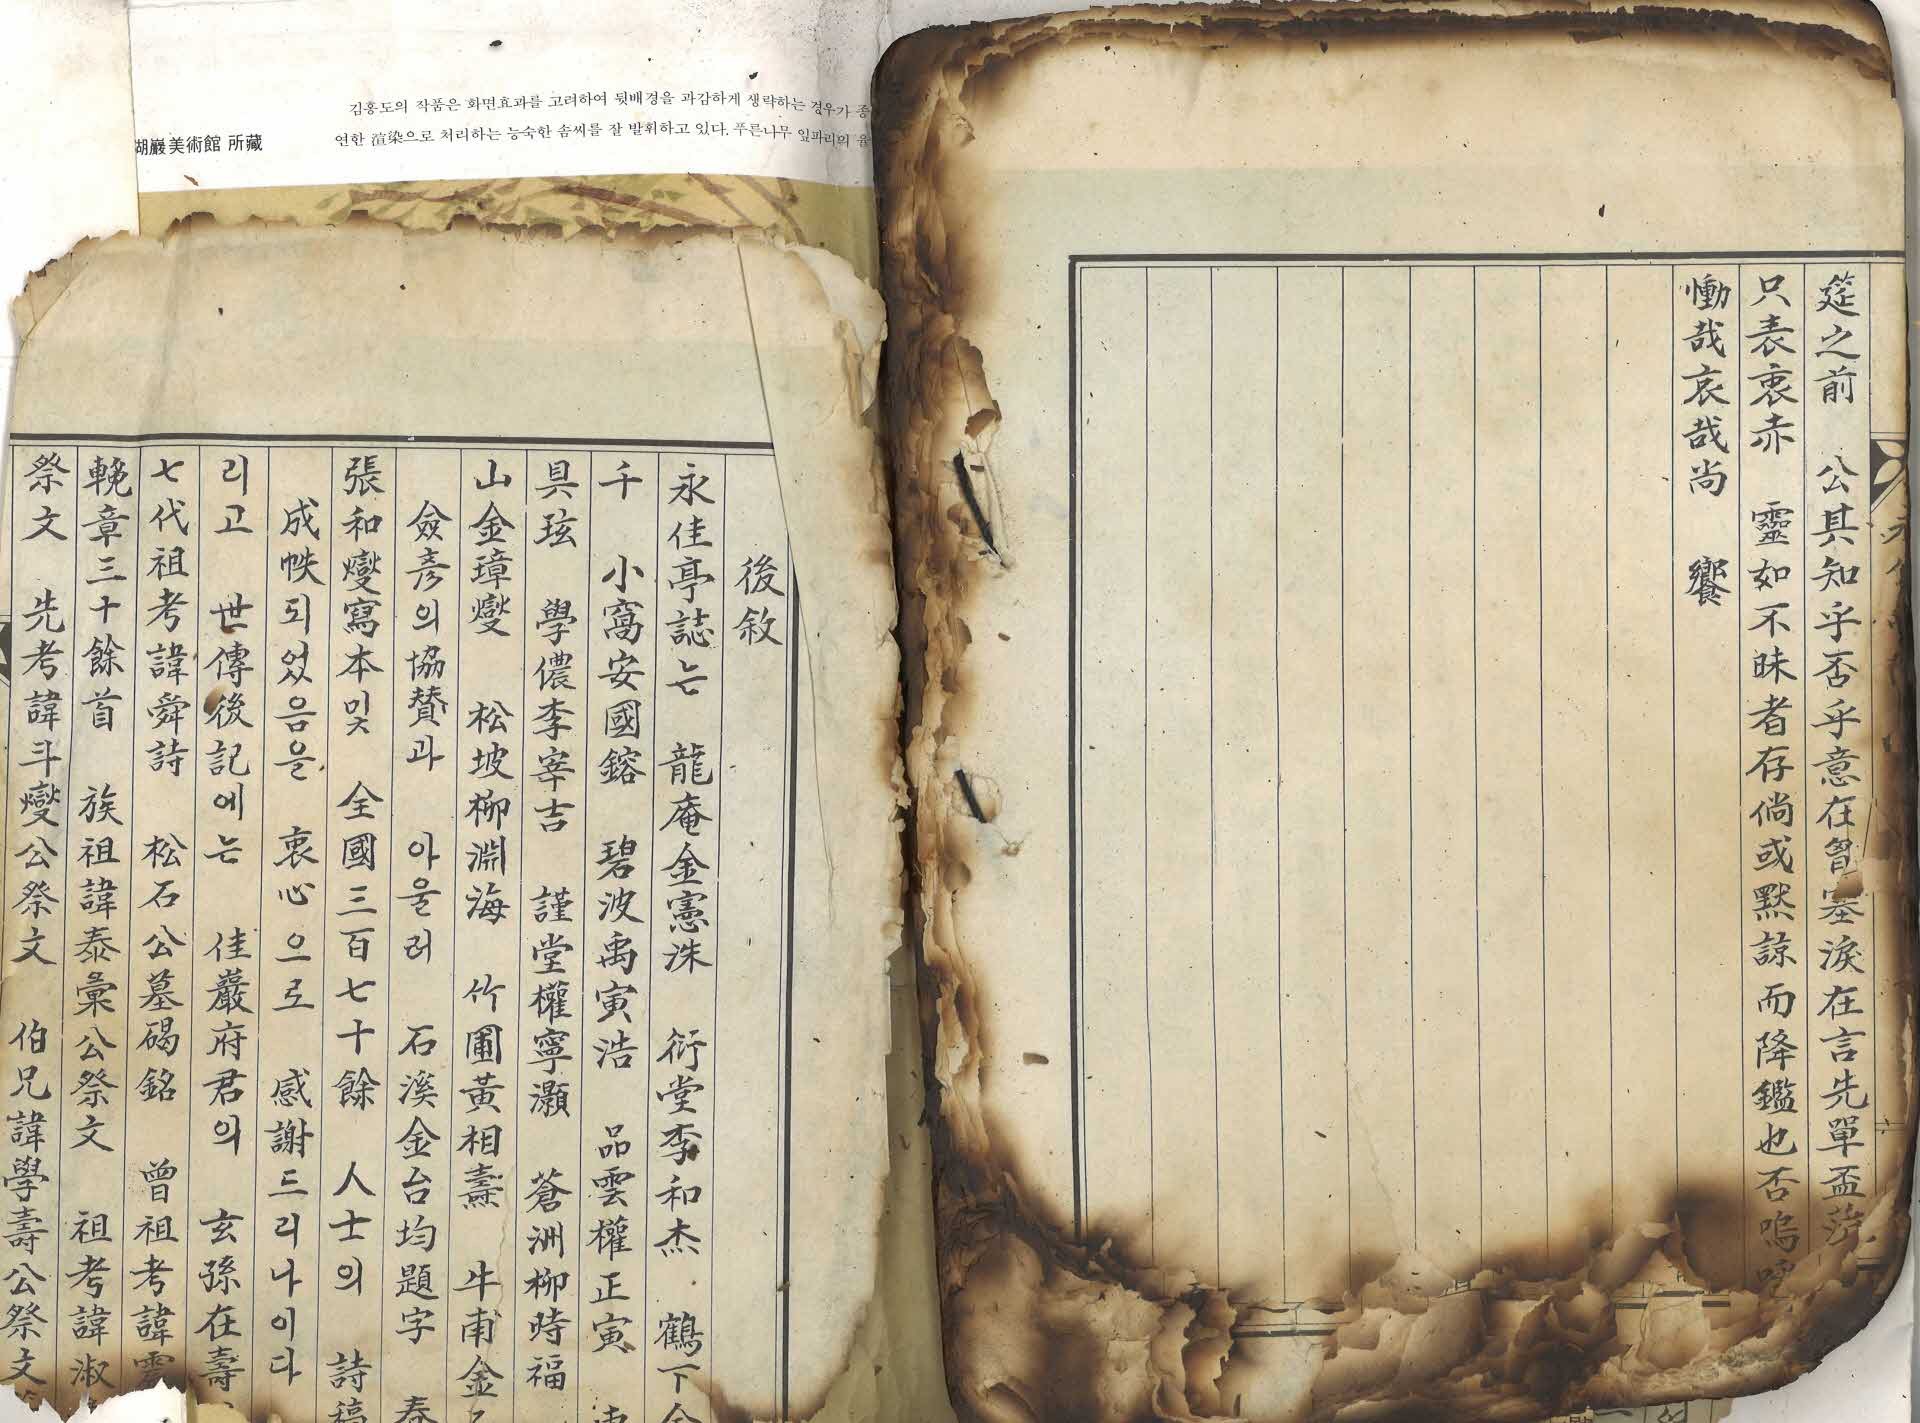 김홍도의 작품은 화면효과를 고려하여 뒷배경을 과감하게 생략하는 경우가
연한 渲染으로 처리하는 능숙한 솜씨를 잘 발휘하고 있다. 푸른나무 잎파리의
湖巖美術館 所藏
筵之前 公其知乎否乎意在胷塞淚在言先單盃
只表衷赤 靈如不昧者存倘或默諒而降鑑也否嗚
慟哉哀哉尚 饗
後敘
永佳亭誌는 龍庵金憲洙 衍堂李和杰 鶴下金
千 小窩安國鎔 碧波禹寅浩 品雲權正寅
具玹 學儂李宰吉 謹堂權寧灝 蒼洲柳時福
山金璋燮 松坡柳淵海 竹圃黃相燾 牛甫金
僉彥의 協贊과 아울러 石溪金台均題字 春
張和燮寫本및 全國三百七十餘 人士의 詩稿
成帙되었음을 衷心으로 感謝드리나이다
리고 世傳後記에는 佳巖府君의 玄孫在壽
七代祖考諱舜詩 松石公墓碣銘 曾祖考諱
輓章三十餘首 族祖諱泰彙公祭文 祖考諱淑
祭文 先考諱斗燮公祭文 伯兄諱學壽公祭文